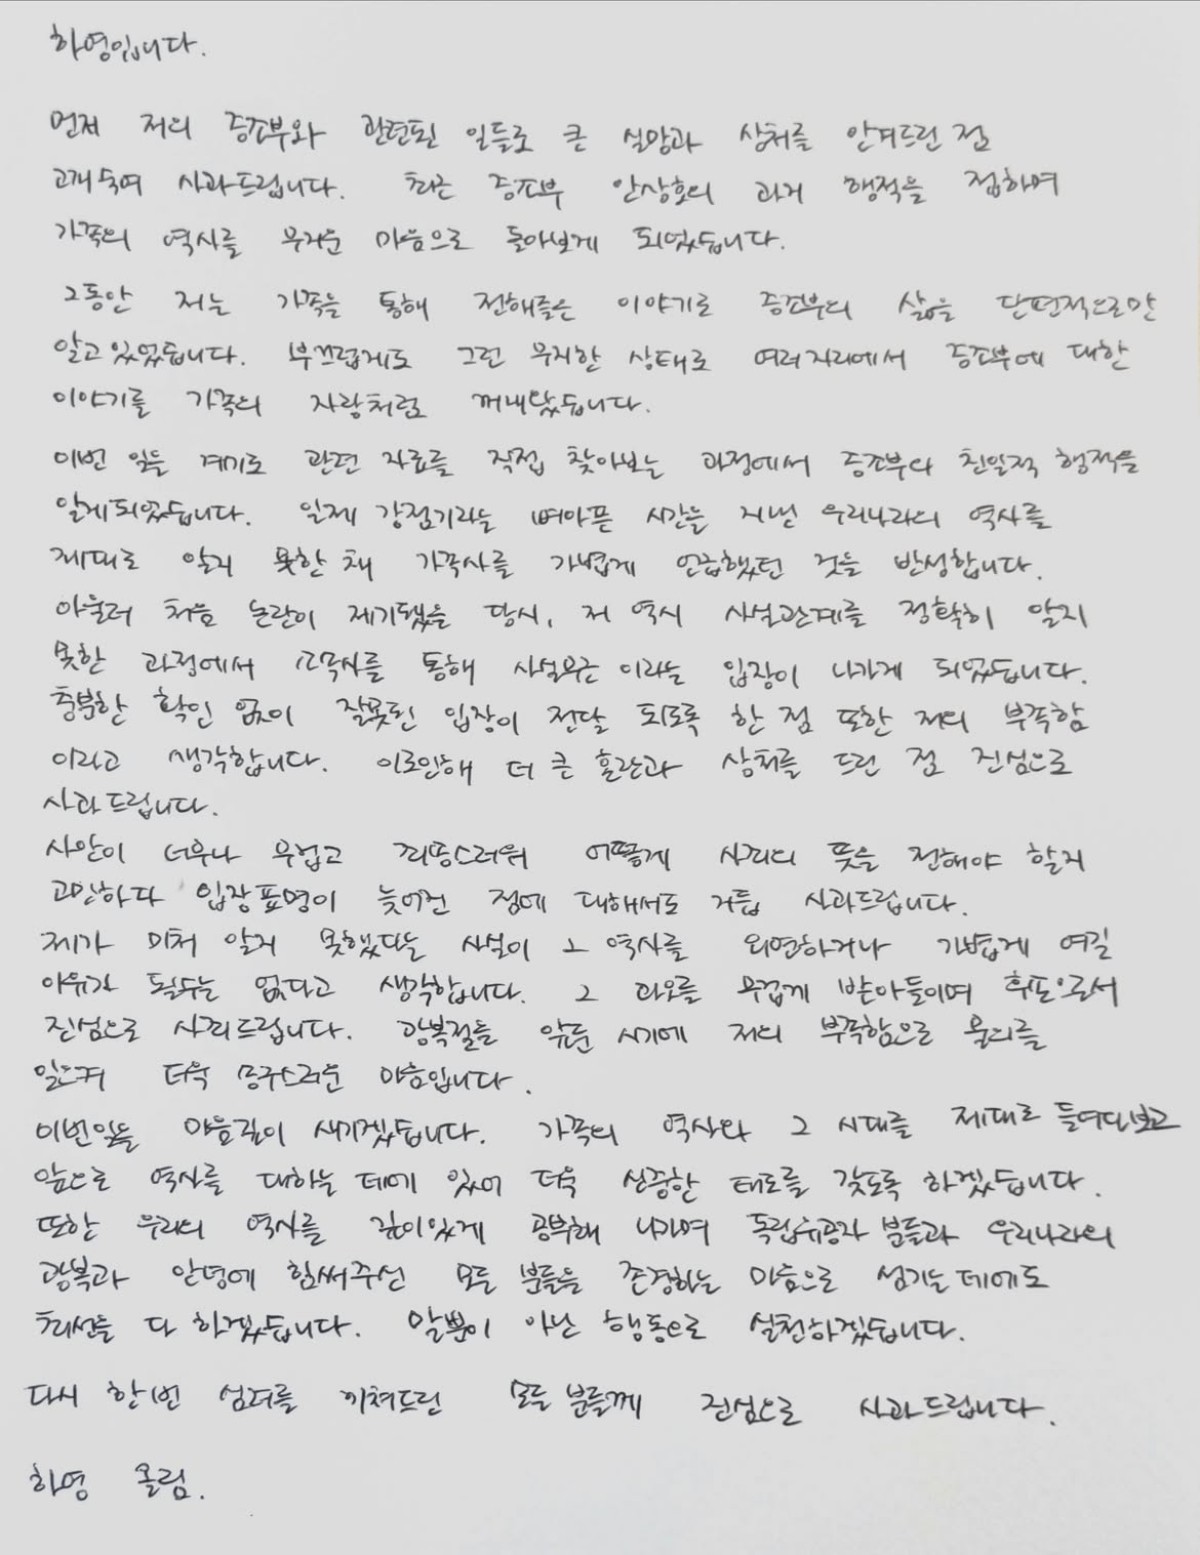 하영입니다.
먼저 저의 증조부와 관련된 일들로 큰 실망과 상처를 안겨드린 점
고개숙여 사과드립니다. 최근 증조부 안상호의 과거 행적을 접하며
가족의 역사를 무거운 마음으로 돌아보게 되었습니다.
그동안 저는 가족을 통해 전해들은 이야기로 증조부의 삶을 단편적으로만
알고 있었습니다. 부끄럽게도 그런 무지한 상태로 여러자리에서 증조부에 대한
이야기를 가족의 자랑처럼 꺼내놨습니다.
이번 일을 계기로 관련 자료를 직접 찾아보는 과정에서 증조부의 친일적 행적을
알게되었습니다. 일제 강점기라는 뼈아픈 시간을 지낸 우리나라의 역사를
제대로 알지 못한 채 가족사를 가볍게 언급했던 것을 반성합니다.
아울러 처음 논란이 제기됐을 당시, 저 역시 사실관계를 정확히 알지
못한 과정에서 소속사를 통해 사실무근 이라는 입장이 나가게 되었습니다.
충분한 확인 없이 잘못된 입장이 전달 되도록 한 점 또한 저의 부족함
이라고 생각합니다. 이로인해 더 큰 혼란과 상처를 드린 점 진심으로
사과드립니다.
사안이 너무나 무겁고 죄송스러워 어떻게 사죄의 뜻을 전해야 할지
고민하다 입장표명이 늦어진 점에 대해서도 거듭 사과드립니다.
제가 미처 알지 못했다는 사실이 그 역사를 외면하거나 가볍게 여길
이유가 될수는 없다고 생각합니다. 그 과오를 무겁게 받아들이며 후손으로서
진심으로 사죄드립니다. 광복절을 앞둔 시기에 저의 부족함으로 물의를
일으켜 더욱 송구스러운 마음입니다.
이번일을 마음깊이 새기겠습니다. 가족의 역사와 그 시대를 제대로 들여다보고
앞으로 역사를 대하는 데에 있어 더욱 신중한 태도를 갖도록 하겠습니다.
또한 우리의 역사를 깊이있게 공부해 나가며 독립유공자 분들과 우리나라의
광복과 안녕에 힘써주신 모든 분들을 존경하는 마음으로 섬기는데에도
최선을 다 하겠습니다. 말뿐이 아닌 행동으로 실천하겠습니다.
다시 한번 심려를 끼쳐드린 모든 분들께 진심으로 사과드립니다.
하영 올림.